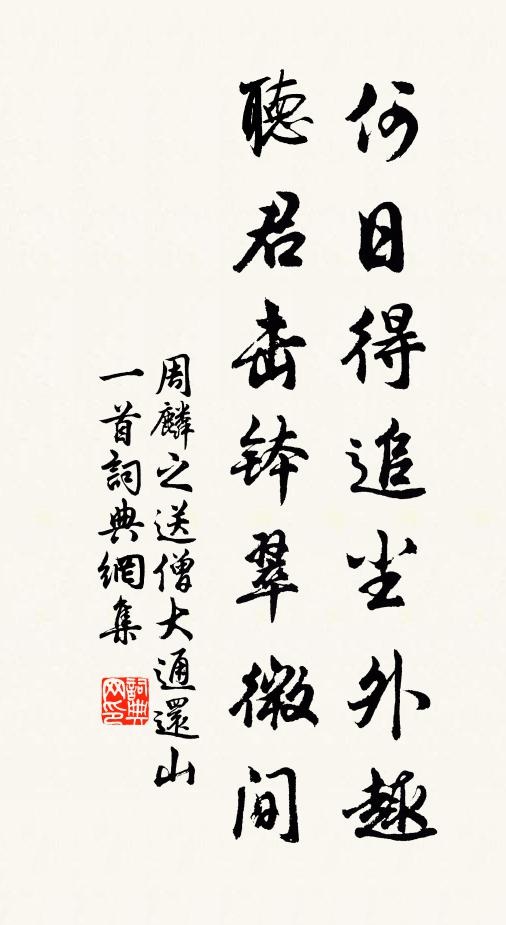 何日得追尘外趣
聽君击钵翠微间
周麟之送僧大通還山
一首詞典網集
詞典网印